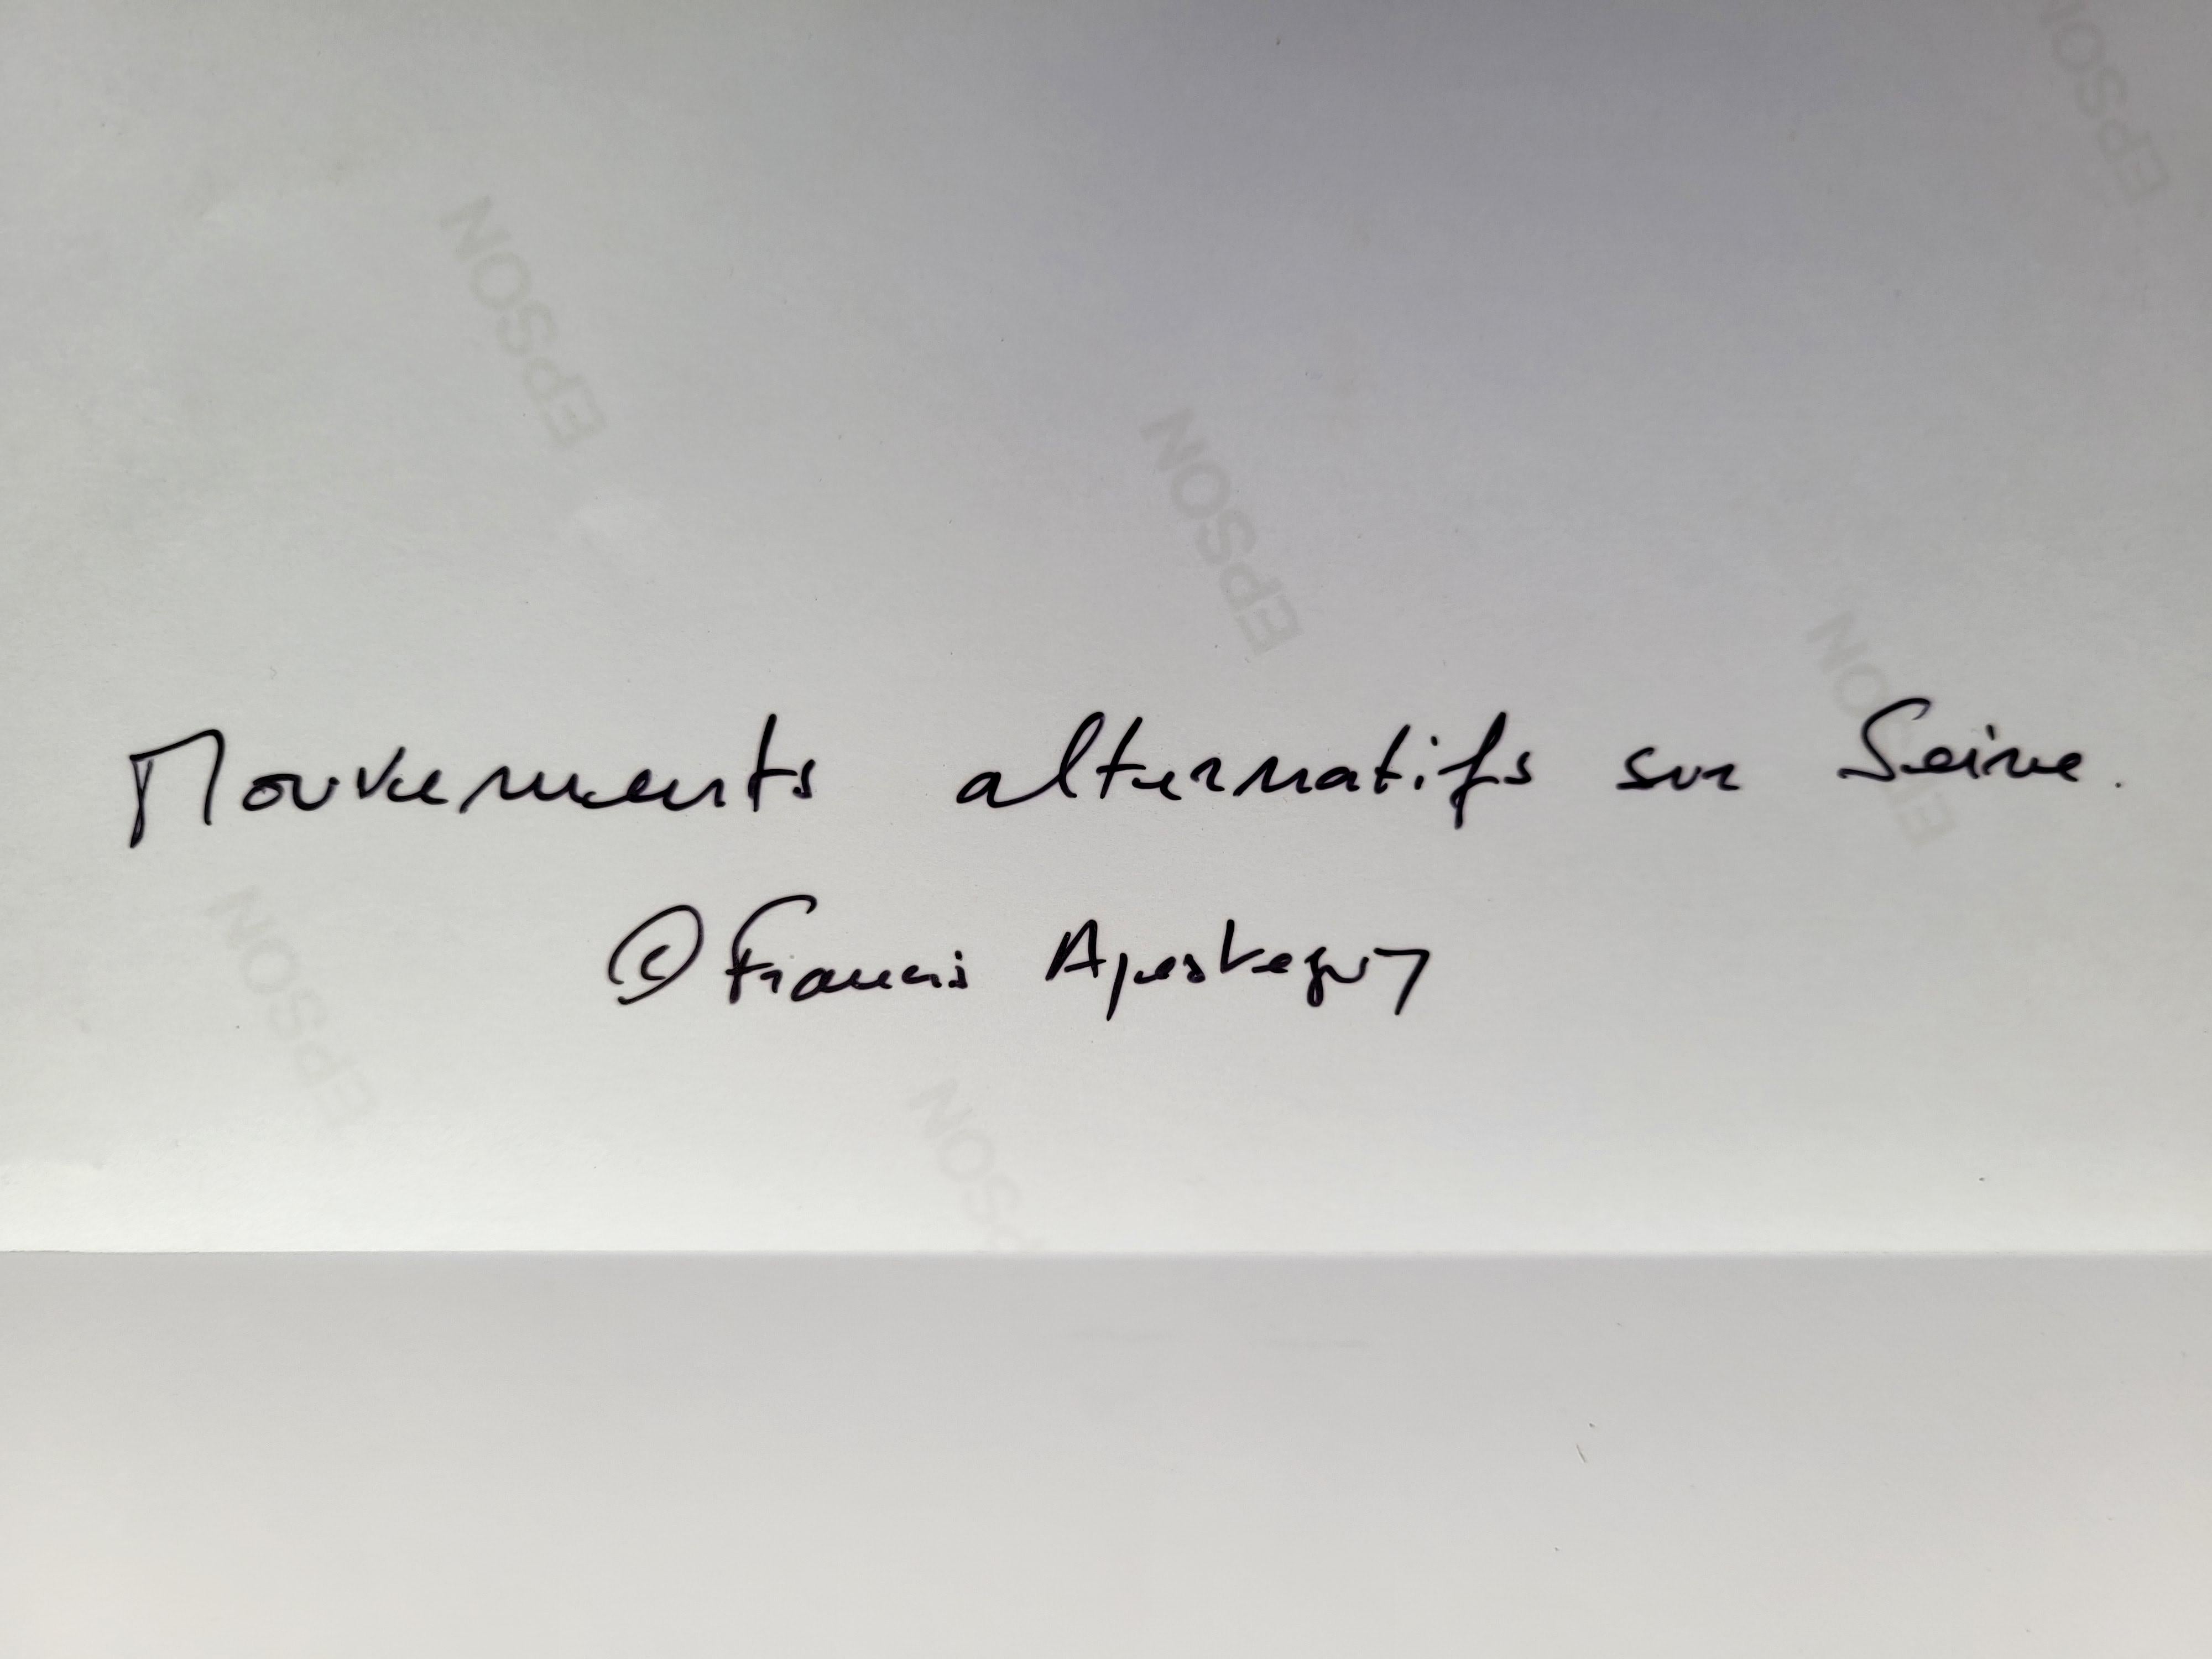 Mouvements alternatifs sur Seine.
© Francis Apesteguy
EPSON
EPSON
EPSON
EPSON
EPSON